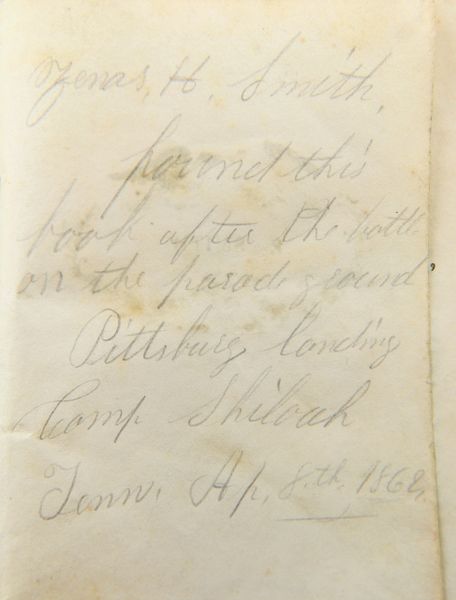 Zenas, H, Smith,
found this
book after the battle
on the parade ground
Pittsburg landing
Camp Shiloah
Tenn. Ap. 8th, 1862,